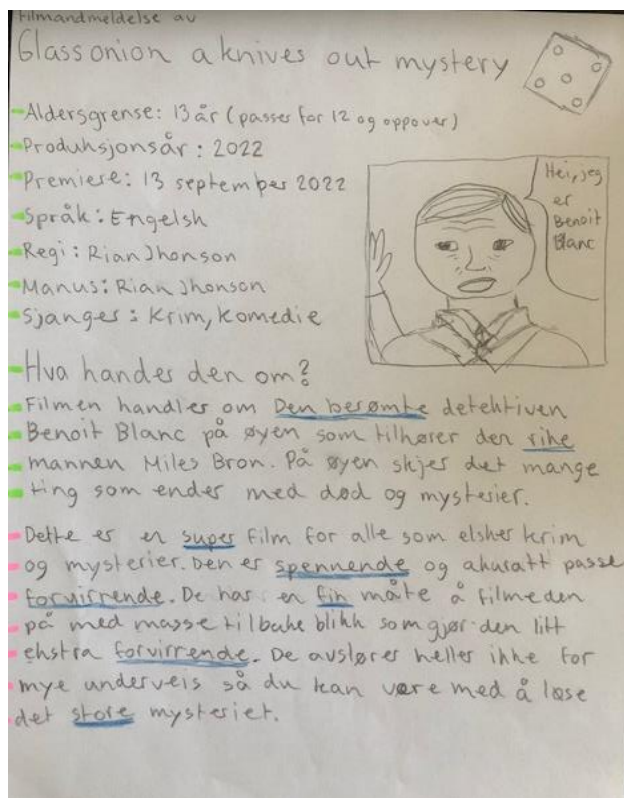 Filmandmeldelse av
Glassonion a knives out mystery
Aldersgrense: 13 år (passer for 12 og oppover)
Produksjonsår: 2022
Premiere: 13 september 2022
Språk: Engelsk
Regi: Rian Jhonson
Manus: Rian Jhonson
Sjanger: Krim, komedie
Hei, jeg
er
Benoit
Blanc
Hva handes den om?
Filmen handler om Den berømte detektiven
Benoit Blanc på øyen som tilhører den rike
mannen Miles Bron. På øyen skjer det mange
ting som ender med død og mysterier.
Dette er en super film for alle som elsker krim
og mysterier. Den er spennende og akuratt passe
forvirrende. De har en fin måte å filme den
på med masse tilbake blikk som gjør den litt
ekstra forvirrende. De avslører heller ikke for
mye underveis så du kan være med å løse
det store mysteriet.